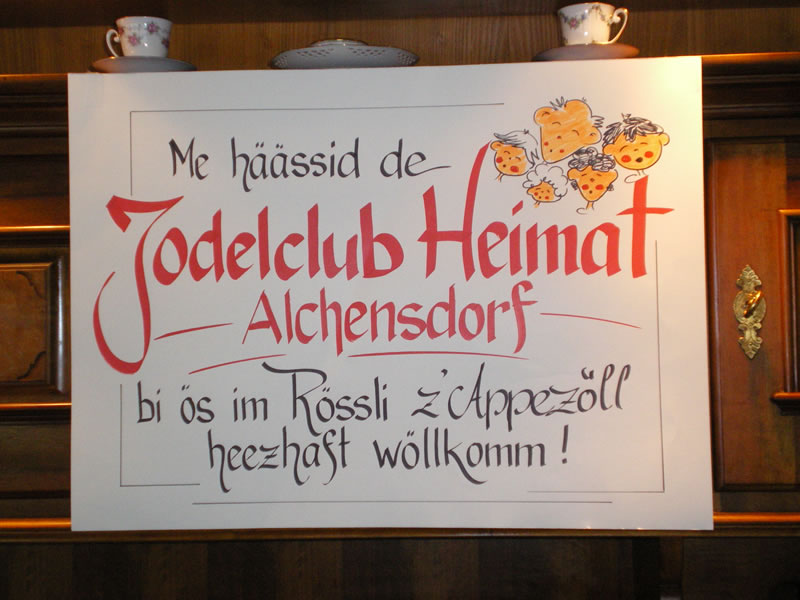 Me häässid de
Jodelclub Heimat
Alchensdorf
bi ös im Rössli z'Appezöll
heezhaft wöllkomm!